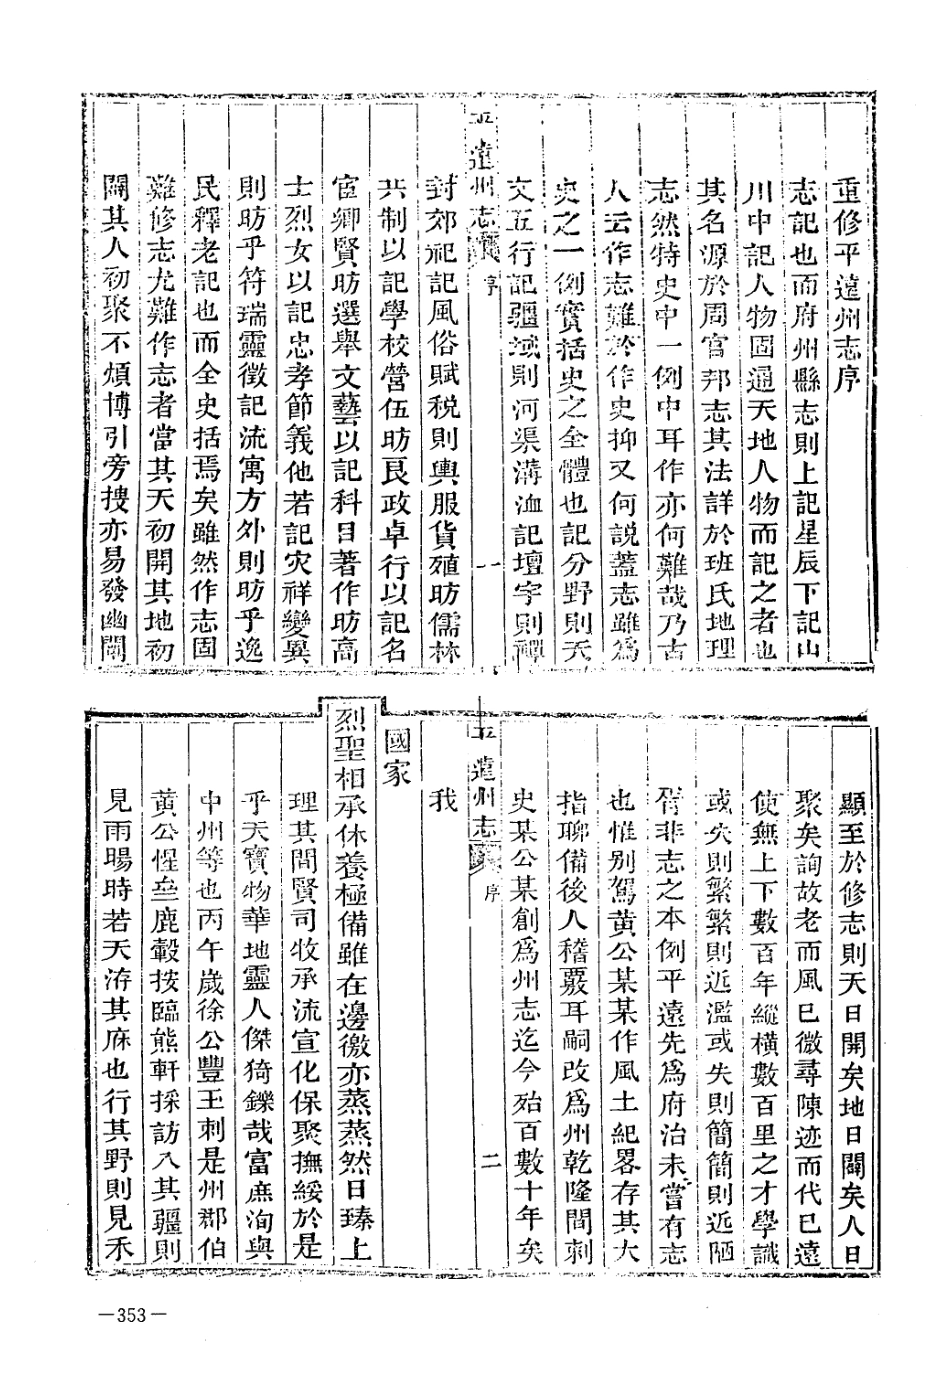 重修平遠州志序
志記也而府州縣志則上記星辰下記山
川中記人物固通天地人物而記之者也
其名源於周官邦志其法詳於班氏地理
志然特史中一例中耳作亦何難哉乃古
人云作志難於作史抑又何說蓋志雖爲
史之一例實括史之全體也記分野則天
文五行記疆域則河渠溝洫記壇宇則禪
平遠州志 序 一
封郊祀記風俗賦税則輿服貨殖昉儒林
共制以記學校營伍昉良政卓行以記名
宦鄉賢昉選舉文藝以記科目著作昉高
士烈女以記忠孝節義他若記灾祥變異
則昉乎符瑞靈徵記流寓方外則昉乎逸
民釋老記也而全史括焉矣雖然作志固
難修志尤難作志者當其天初開其地初
闢其人初聚不煩博引旁搜亦易發幽闡
顯至於修志則天日開矣地日闢矣人日
聚矣詢故老而風已微尋陳迹而代已遠
使無上下數百年縱橫數百里之才學識
或失則繁繁則近濫或失則簡簡則近陋
胥非志之本例平遠先爲府治未嘗有志
也惟别駕黄公某某作風土紀畧存其大
指聊備後人稽覈耳嗣改爲州乾隆間刺
史某公某創爲州志迄今殆百數十年矣
平遠州志 序 二
我
國家
烈聖相承休養極備雖在邊徼亦蒸蒸然日臻上
理其間賢司牧承流宣化保聚撫綏於是
乎天寶物華地靈人傑猗鑠哉富庶洵與
中州等也丙午歲徐公豐玉刺是州郡伯
黄公惺垒鹿轂按臨熊軒採訪入其疆則
見雨暘時若天洊其庥也行其野則見禾
—353—